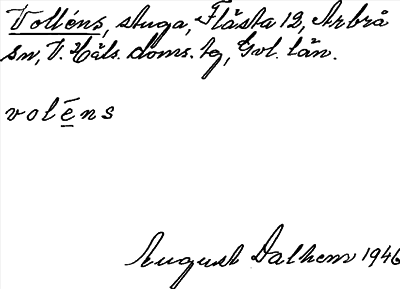 Volléns, stuga, Flästa 12, Arbrå
sn, V. Häls. doms. tg, Gvl. län.
voléns
August Dalhem 1946